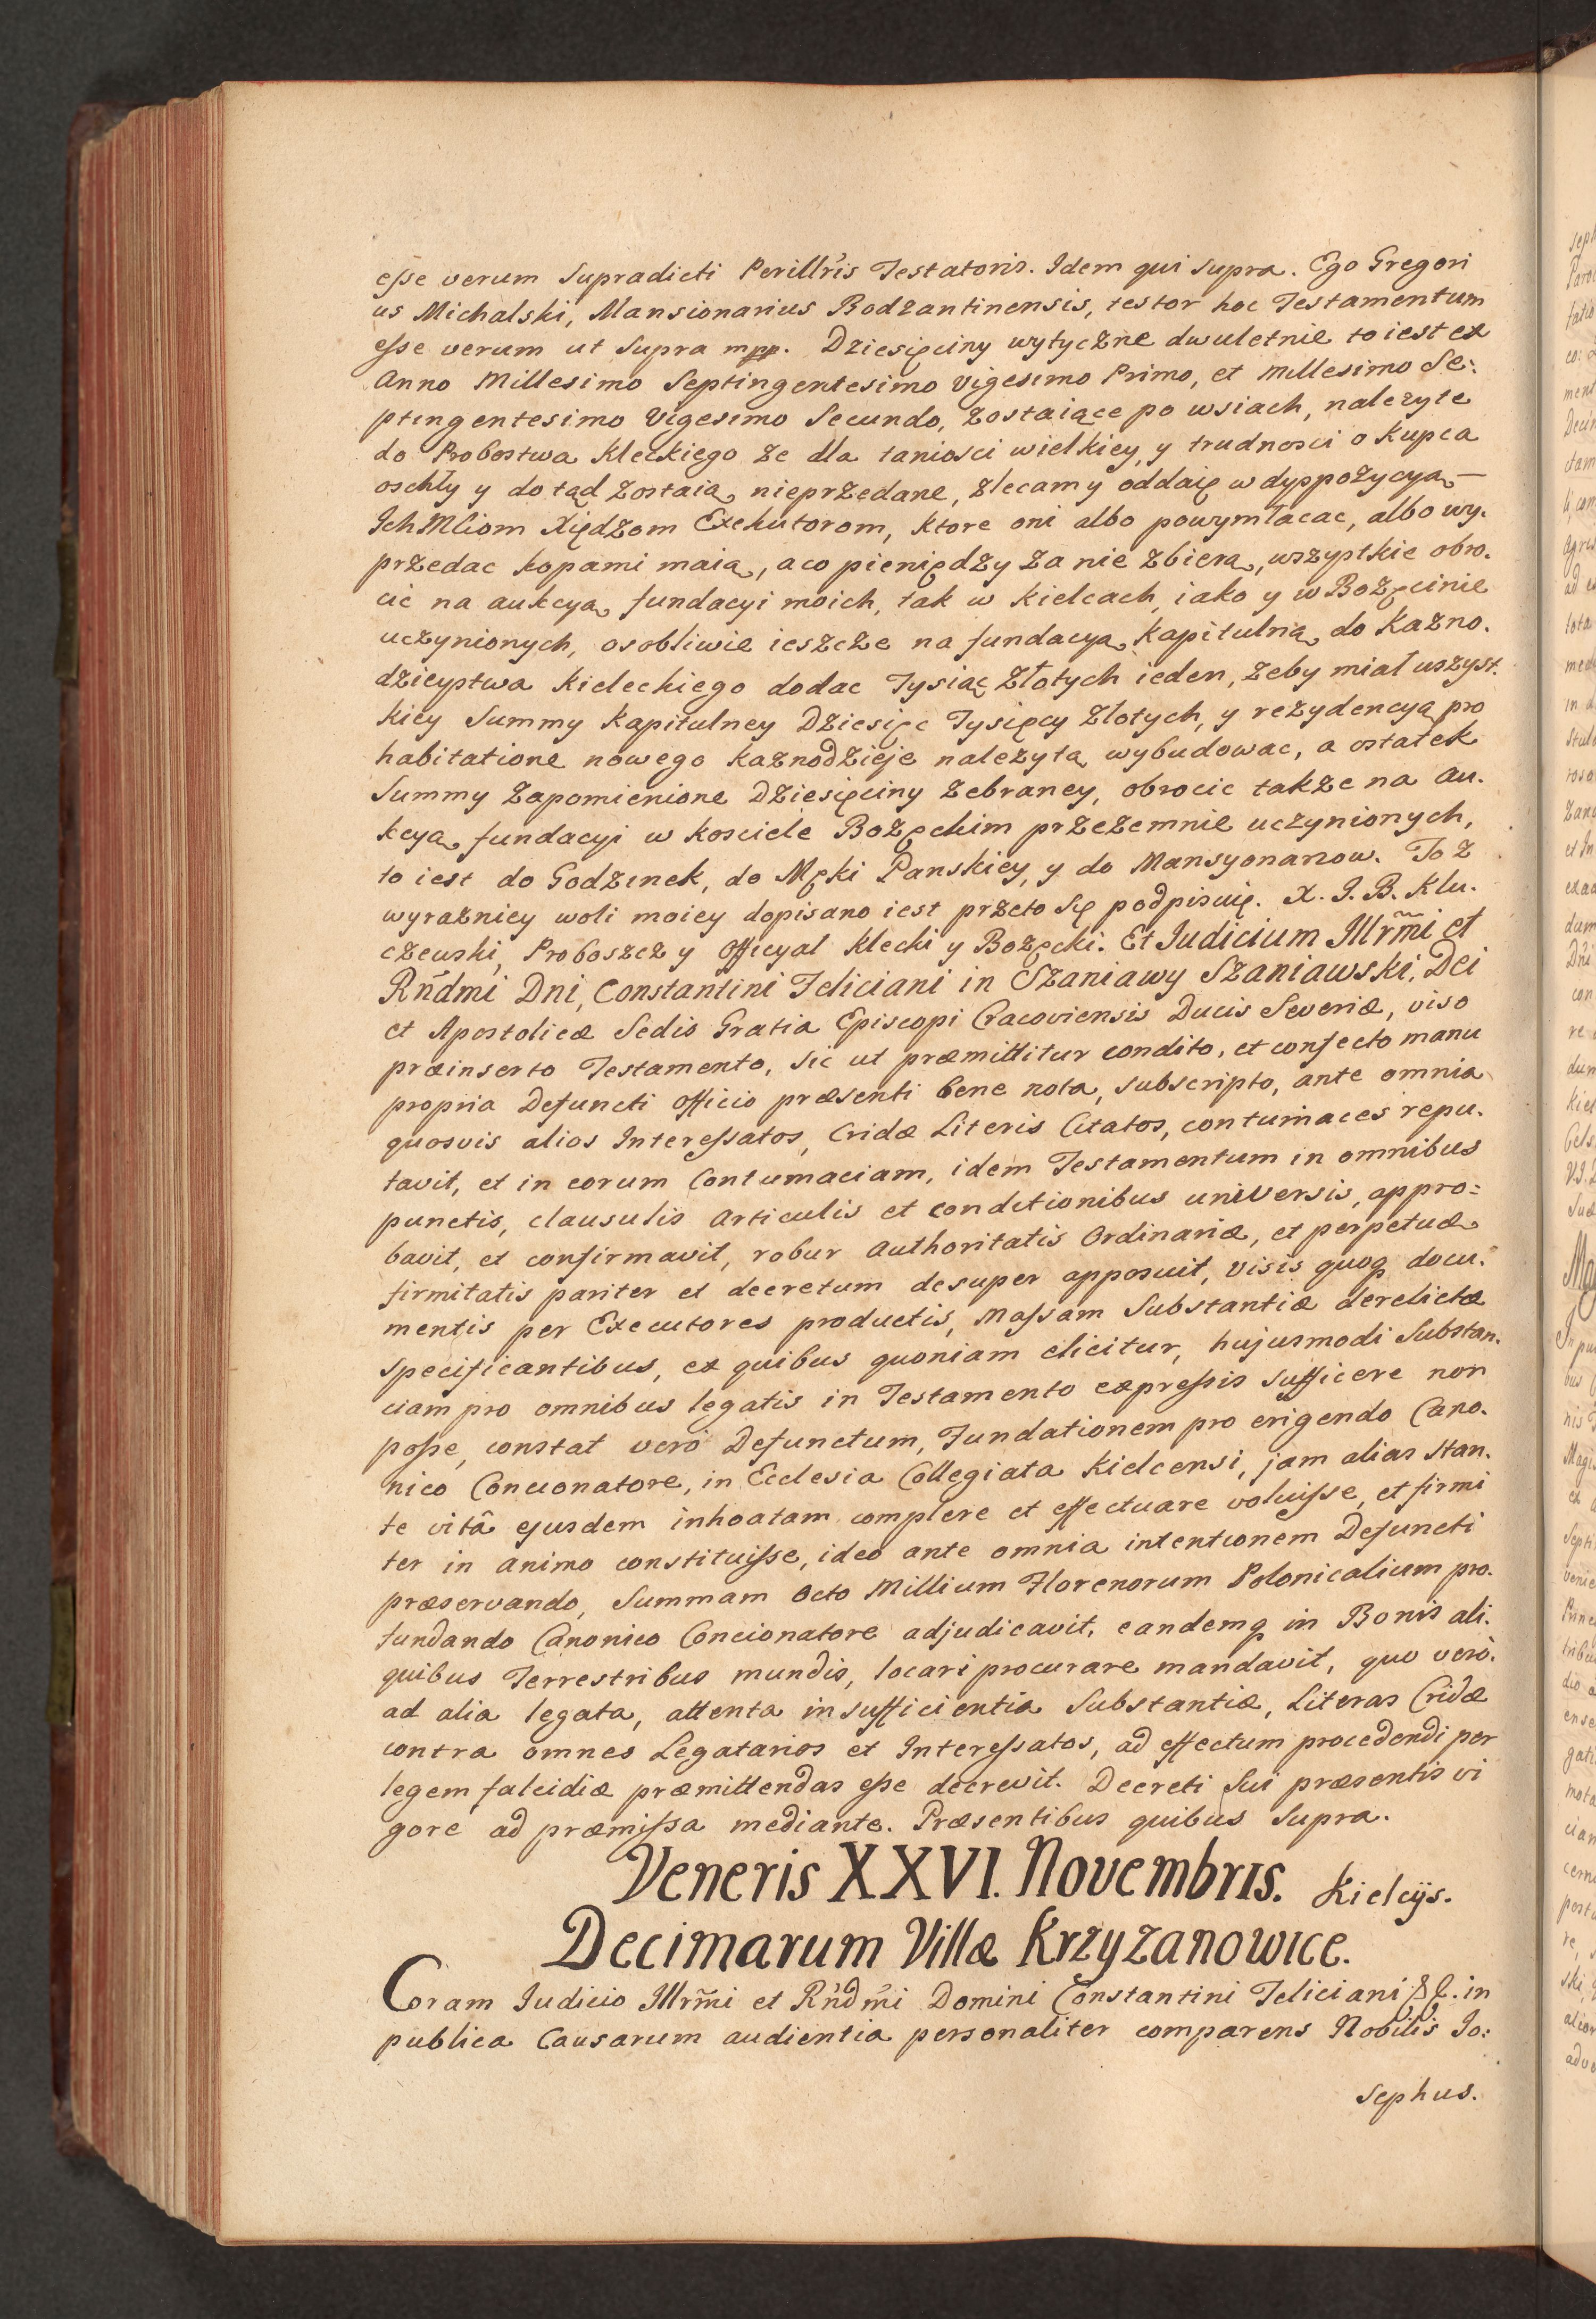 esse verum Supradicti Perillris Testatoris. Idem qui supra. Ego Gregori
us Michalski, Mansionarius Bodzantinensis, testor hoc Testamentum
esse verum ut supra mpp. Dziesięciny wytyczne dwuletnie to iest ex
Anno Millesimo Septingentesimo Vigesimo Primo, et Millesimo Se:
ptingentesimo Vigesimo Secundo, zostaiące po wsiach, nalezyte
do Probostwa Kleckiego ze dla taniosci wielkiey, y trudnosci o kupca
oschły y do tąd zostaią, nieprzedane, zlecam y oddaię w dyspozycyą
Ich Mciom Xiędzom Exekutorom, ktore oni albo powymłacac, albo wy.
przedac kopami maią, a co pieniędzy za nie zbiera, wszystkie obro.
cic na aukcyą fundacyi moich, tak w Kielcach, iako y w Bozęcinie
uczynionych, osobliwie ieszcze na fundacyą kapitulną do Kazno.
dzieystwa Kieleckiego dodac Tysiąc Złotych ieden, zeby miał wszyst.
kiey Summy kapitulney Dziesięc Tysięcy Zlotych, y rezydencyą pro
habitatione nowego kaznodzieje nalezytą wybudowac, a ostatek
Summy zapomienione Dziesięciny zebraney, obrocic takze na au.
kcyą fundacyi w kosciele Bozęckim przezemnie uczynionych,
to iest do Godzinek, do Męki Panskiey, y do Mansyonarzow. To z
wyrazniey woli moiey dopisano iest przeto się podpisuię. X. J. B. Klu.
czewski, Proboszcz y Officyal Klecki y Bozęcki. Et Iudicium Illrmi et
Rndmi Dni, Constantini Feliciani in Szaniawy Szaniawski, Dei
et Apostolicæ Sedis Gratia Episcopi Cracoviensis Ducis Severiæ, viso
præinserto Testamento, sic ut præmittitur condito, et confecto manu
propria Defuncti Officio præsenti bene nota, subscripto, ante omnia
quosvis alios Interessatos, Cridæ Literis Citatos, contumaces repu.
tavit, et in eorum Contumaciam, idem Testamentum in omnibus
punctis, clausulis articulis et conditionibus universis, appro:
bavit, et confirmavit, robur Authoritatis Ordinariæ, et perpetuæ
firmitatis pariter et decretum desuper apposuit, visis quoq docu.
mentis per Executores productis, Massam Substantiæ derelictæ
specificantibus, ex quibus quoniam elicitur, hujusmodi Substan.
ciam pro omnibus legatis in Testamento expressis sufficere non
posse, constat verò Defunctum, Fundationem pro erigendo Cano.
nico Concionatore, in Ecclesia Collegiata Kielcensi, jam alias stan.
te vitâ ejusdem inhoatam complere et effectuare voluisse, et firmi
ter in animo constituisse, ideo ante omnia intentionem Defuncti
præservando, Summam Octo Millium Florenorum Polonicalium pro.
fundando Canonico Concionatore adjudicavit, eandemq in Bonis ali.
quibus Terrestribus mundis, locari procurare mandavit, quo verò.
ad alia legata, attenta insufficientia Substantiæ, Literas Cridæ
contra omnes Legatarios et Interessatos, ad effectum procedendi per
legem falcidiæ præmittendas esse decrevit. Decreti sui præsentis vi
gore ad præmissa mediante. Præsentibus quibus supra.
Veneris XXVI. Novembris. Kielcijs.
Decimarum Villæ Krzyzanowice.
Coram Iudicio Illrmi et Rndmi Domini Constantini Feliciani &c. in
publica Causarum audientia personaliter comparens Nobilis Io:
sephus.